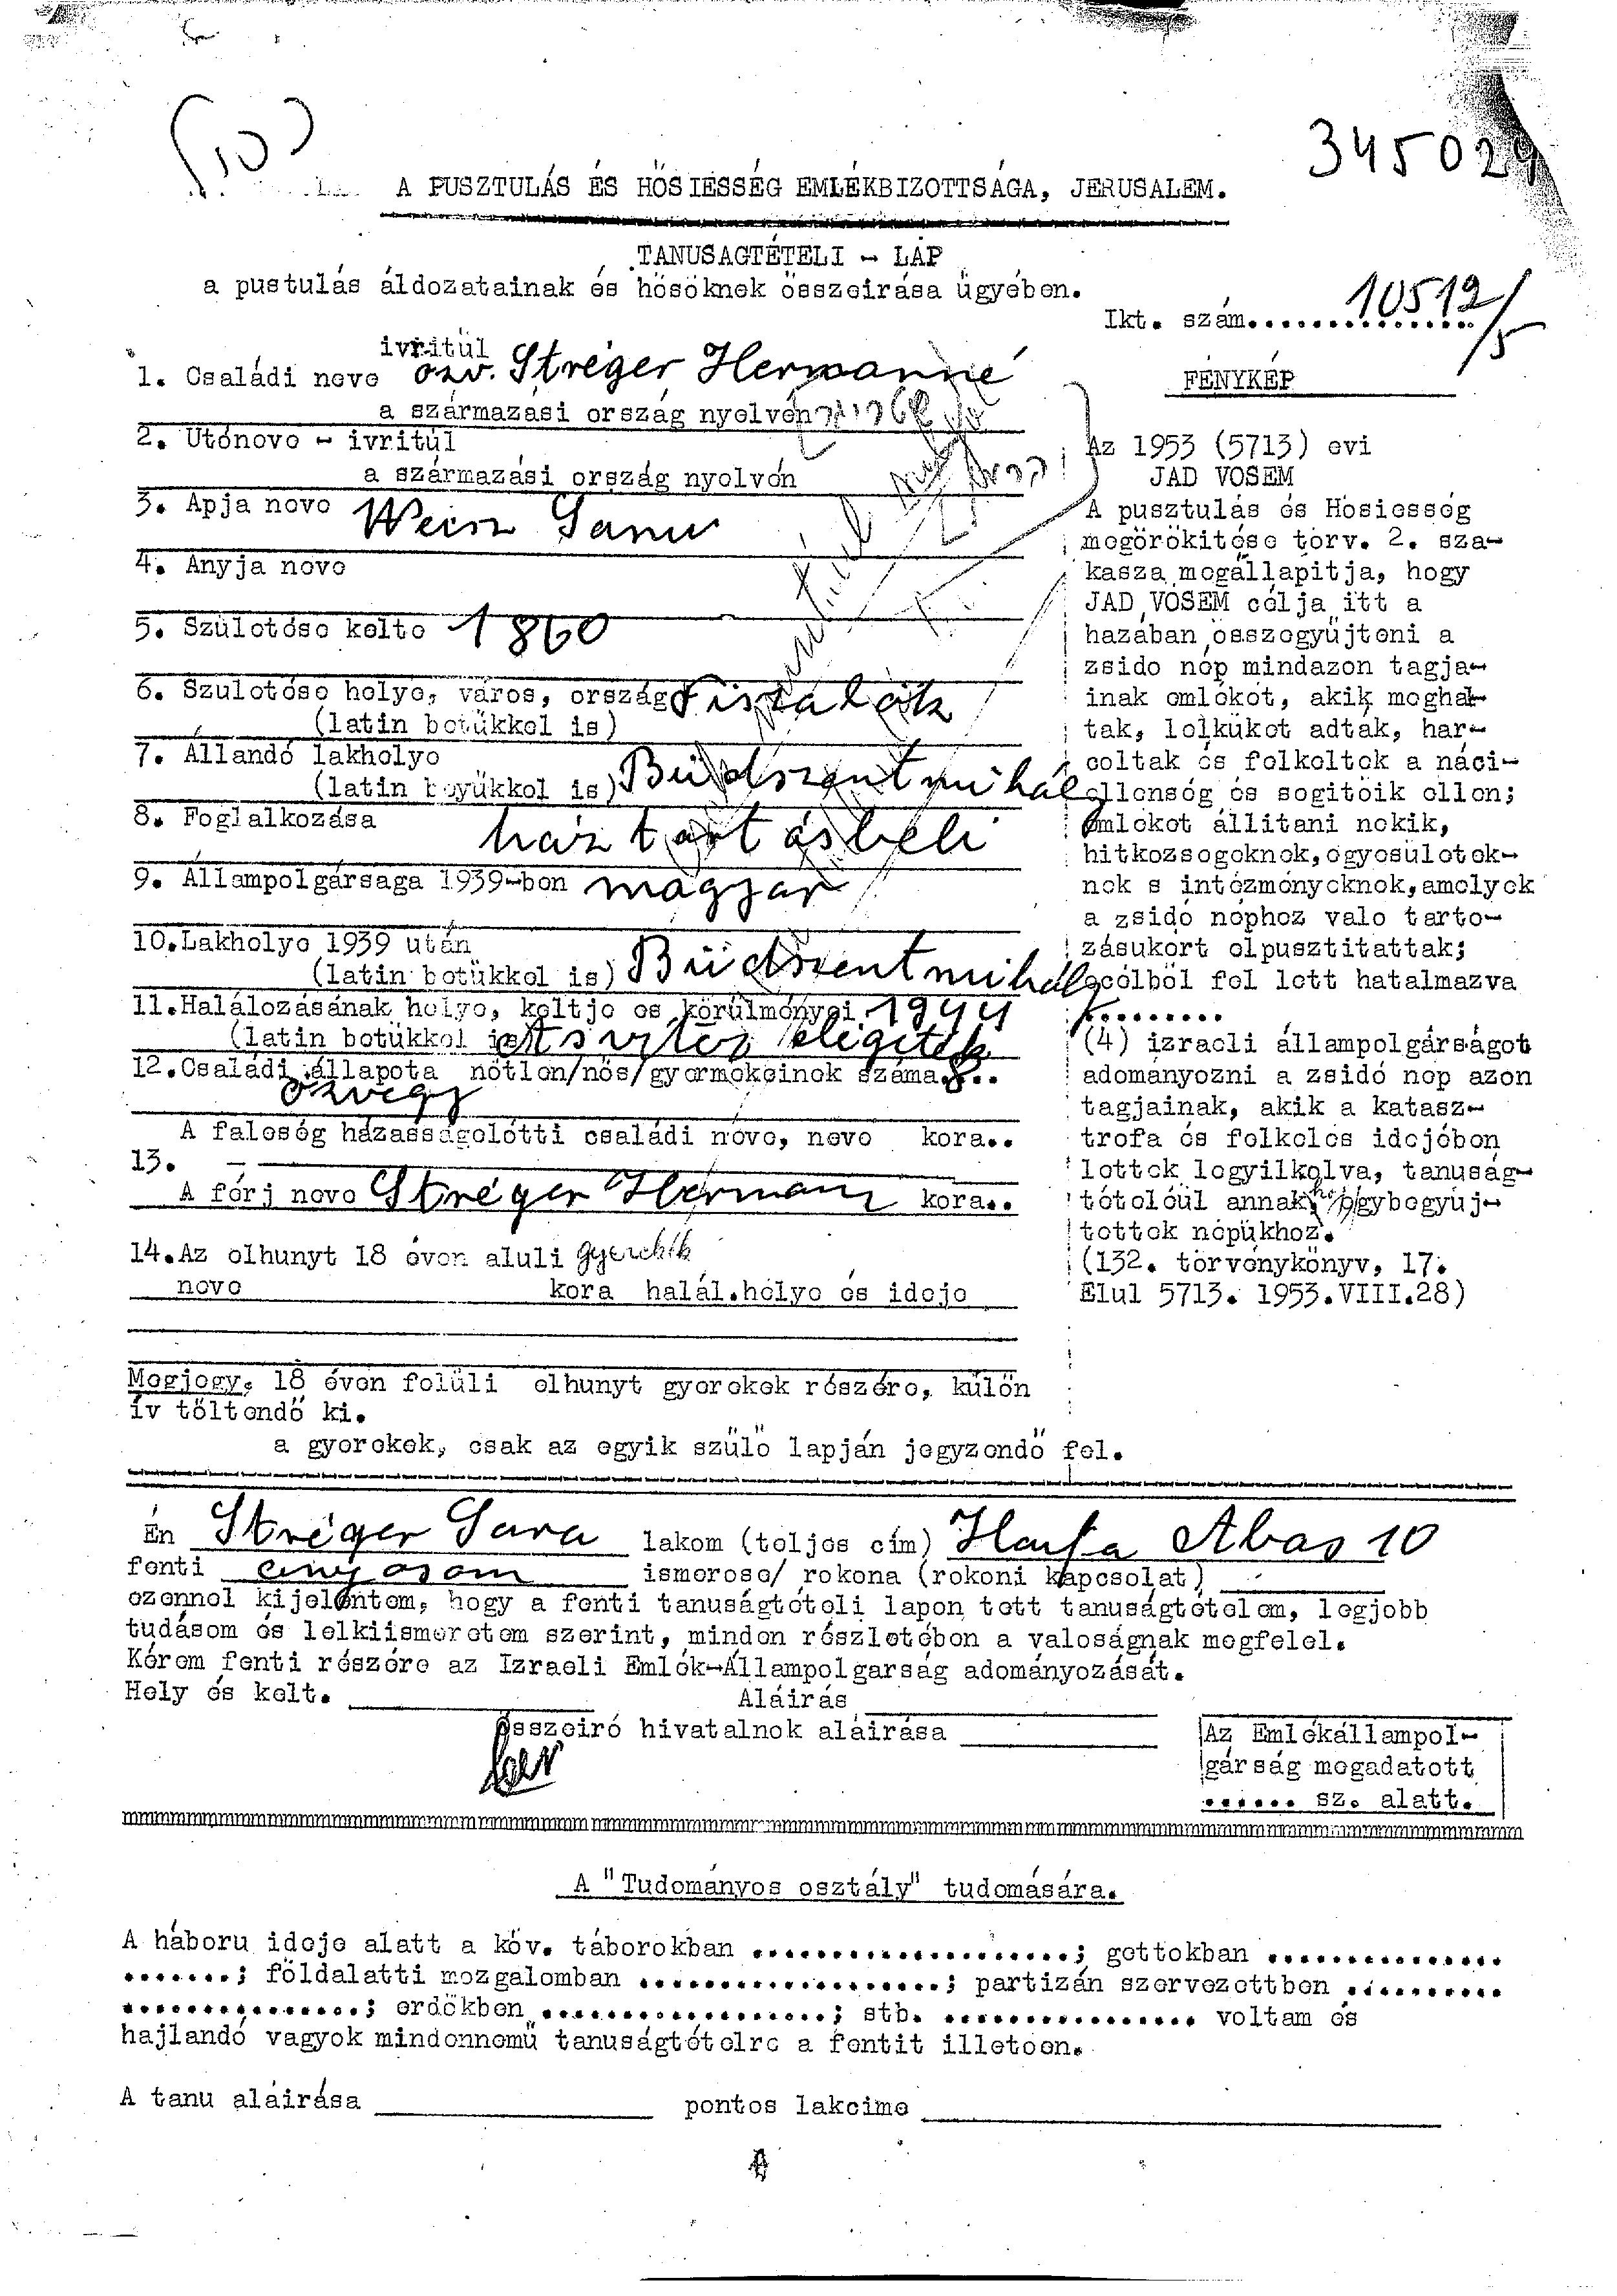 345029
A PUSZTULÁS ÉS HŐSIESSÉG EMLÉKBIZOTTSÁGA, JERUSALEM.
TANUSAGTÉTELI - LAP
a pustulás áldozatainak és hősöknek összeirása ügyében.
Ikt. szám............... 10512/5
ivritül
1. Családi neve özv. Stréger Hermanné
a származási ország nyelvén
2. Utóneve - ivritül
a származási ország nyelvén
3. Apja neve Weisz Samu
4. Anyja neve
5. Születése kelte 1860
6. Születése helye, város, ország Tiszalök
(latin betükkel is)
7. Állandó lakhelye
(latin beyükkel is) Büdszentmihály
8. Foglalkozása háztartásbeli
9. Állampolgársaga 1939-ben magyar
10. Lakhelye 1939 után
(latin betükkel is) Büdszentmihály
11. Halálozásának helye, keltje es körülményei 1944
(latin betükkel is) elégeték
12. Családi állapota nőtlen/nős/gyermekeinek száma.8..
özvegy
A feleség házasságelőtti családi neve, neve kora..
13.
A férj neve Stréger Hermann kora..
14. Az elhunyt 18 éven aluli gyerekek
neve kora halál.helye és ideje
Megjegy. 18 éven felüli elhunyt gyerekek részére, külön
ív töltendő ki.
a gyerekek, csak az egyik szülő lapján jegyzendő fel.
FÉNYKÉP
Az 1953 (5713) evi
JAD VOSEM
A pusztulás és Hősiesség
megörökitése törv. 2. sza-
kasza megállapitja, hogy
JAD VOSEM célja itt a
hazában összegyüjteni a
zsido nép mindazon tagja-
inak emlékét, akik meghal-
tak, lelküket adták, har-
coltak és felkeltek a náci-
ellenség és segitőik ellen;
Emléket állitani nekik,
hitközségeknek, egyesületek-
nek s intézményeknek, amelyek
a zsidó néphez való tarto-
zásukért elpusztitattak;
E célból fel lett hatalmazva
.........
(4) izraeli állampolgárságot
adományozni a zsidó nép azon
tagjainak, akik a katasz-
trofa és felkelés idejében
lettek legyilkolva, tanuság-
tételéül annak, egybegyüj-
tettek népükhöz.
(132. törvénykönyv, 17.
Elul 5713. 1953.VIII.28)
Én Stréger Sara lakom (teljes cím) Haifa Abas 10
fenti anyósom ismerőse/ rokona (rokoni kapcsolat)
ezennel kijelentem, hogy a fenti tanuságtételi lapon tett tanuságtételem, legjobb
tudásom és lelkiismeretem szerint, minden részletében a valoságnak megfelel.
Kérem fenti részére az Izraeli Emlék-Állampolgarság adományozását.
Hely és kelt. Aláirás
Összeiró hivatalnok aláirása
Az Emlékállampol-
gárság megadatott
...... sz. alatt.
A "Tudományos osztály" tudomására.
A háboru ideje alatt a köv. táborokban ....................; gettokban ...............
.......; földalatti mozgalomban ...................; partizán szervezettben ..........
...............; erdőkben ..................; stb. ................ voltam és
hajlandó vagyok mindennemü tanuságtételre a fentit illetően.
A tanu aláirása pontos lakcime